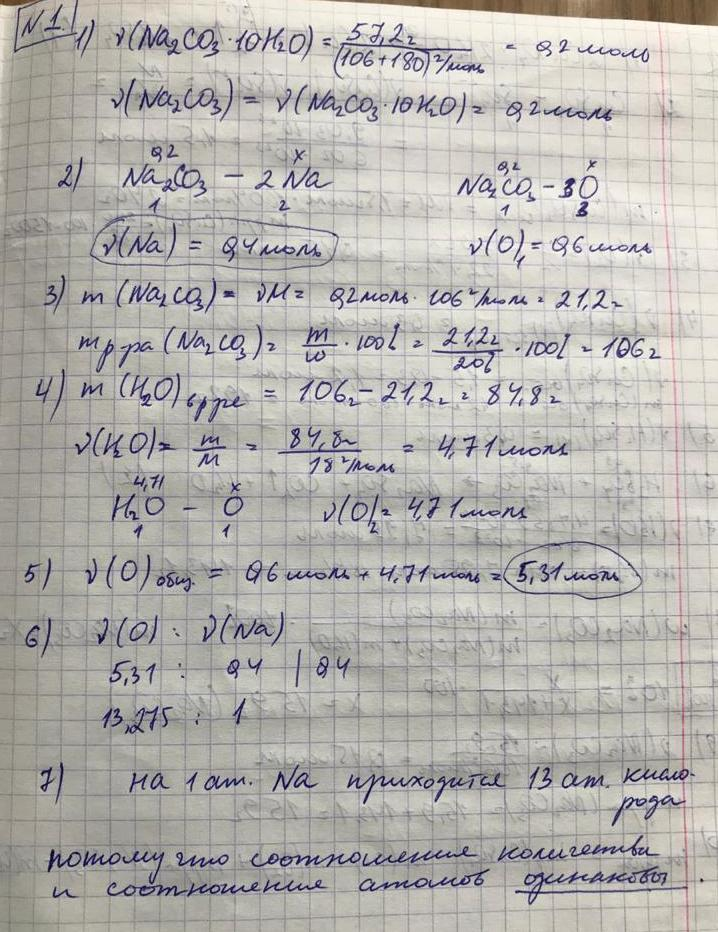 N1.
1) ν(Na2CO3·10H2O) = 57,2г / (106+180)г/моль = 0,2 моль
ν(Na2CO3) = ν(Na2CO3·10H2O) = 0,2 моль
0,2 x 0,2 x
2) Na2CO3 – 2Na Na2CO3 – 3O
1 2 1 3
ν(Na) = 0,4 моль ν(O)1 = 0,6 моль
3) m(Na2CO3) = νM = 0,2 моль · 106 г/моль = 21,2г
mр-ра (Na2CO3) = m/ω · 100% = 21,2г/20% · 100% = 106г
4) m(H2O) в р-ре = 106г – 21,2г = 84,8г
ν(H2O) = m/M = 84,8г / 18г/моль = 4,71 моль
4,71 x
H2O – O ν(O)2 = 4,71 моль
1 1
5) ν(O) общ. = 0,6 моль + 4,71 моль = 5,31 моль
6) ν(O) : ν(Na)
5,31 : 0,4 | 0,4
13,275 : 1
7) на 1 ат. Na приходится 13 ат. кисло-
рода
потому что соотношение количества
и соотношение атомов одинаковы.